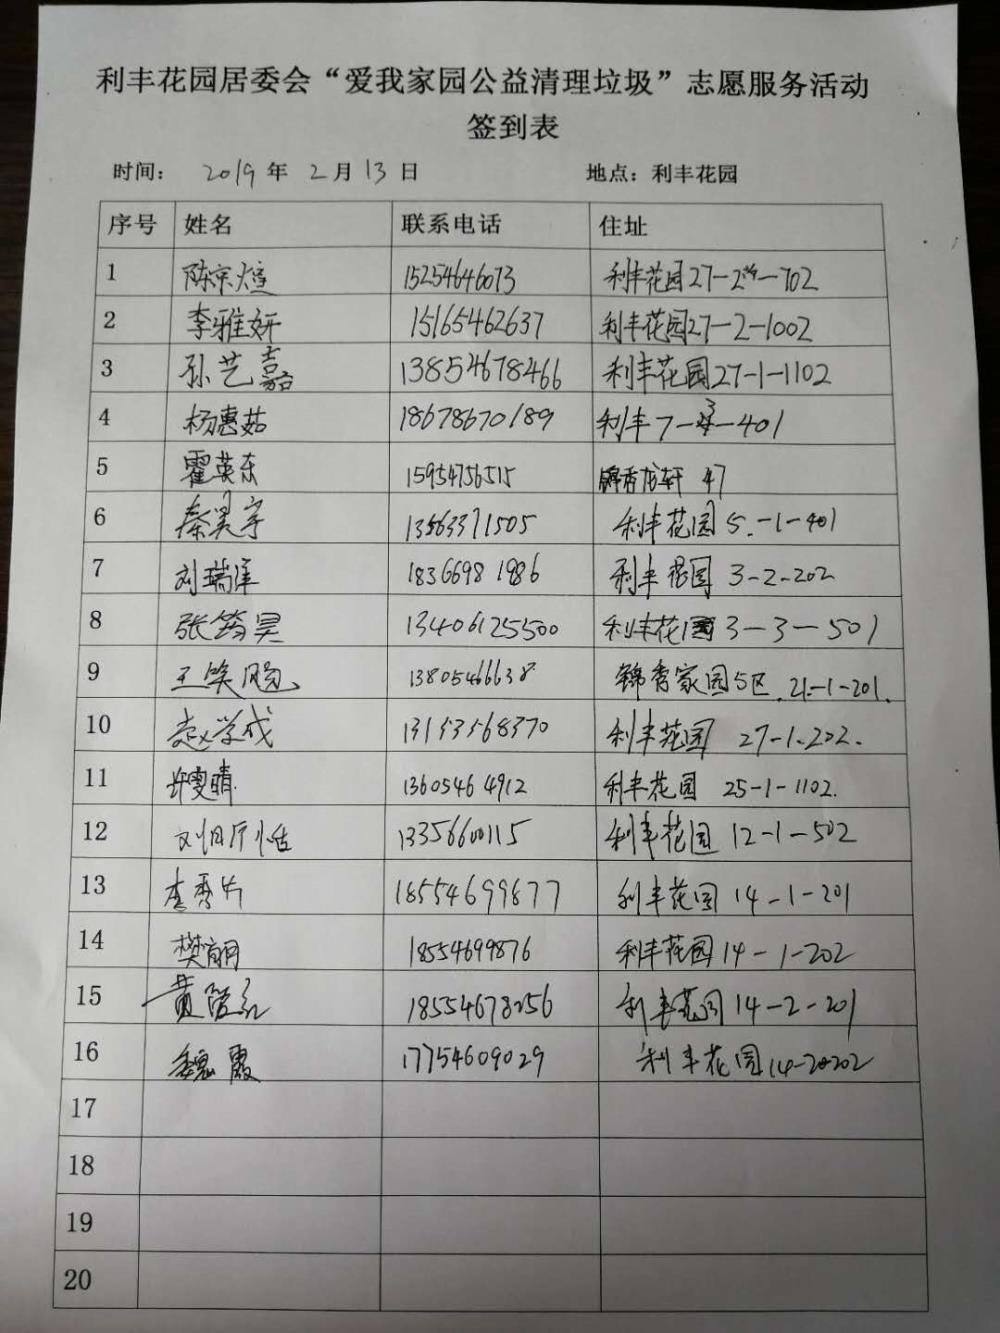 利丰花园居委会“爱我家园公益清理垃圾”志愿服务活动
签到表
时间： 2019 年 2 月 13 日 地点：利丰花园
序号 姓名 联系电话 住址
1 陈京煊 15254646073 利丰花园27-2-702
2 李雅妍 15165462637 利丰花园27-2-1002
3 孙艺嘉 13854678466 利丰花园27-1-1102
4 杨惠茹 18678670189 利丰7-3-401
5 霍英东 15954756515 锦香龙轩 47
6 秦昊宇 13563371505 利丰花园 5.-1-401
7 刘瑞洋 18366981986 利丰花园 3-2-202
8 张筠昊 13406125500 利丰花园3-3-501
9 王笑飏 13805466638 锦香家园5区.21-1-201.
10 赵学成 13153568370 利丰花园 27-1.202.
11 许雯晴 13605464912 利丰花园 25-1-1102.
12 13356600115 利丰花园 12-1-502
13 李秀片 18554699877 利丰花园 14-1-201
14 樊 18554699876 利丰花园14-1-202
15 黄 18554678256 利丰花园14-2-201
16 魏霞 17754609029 利丰花园14-2-202
17
18
19
20